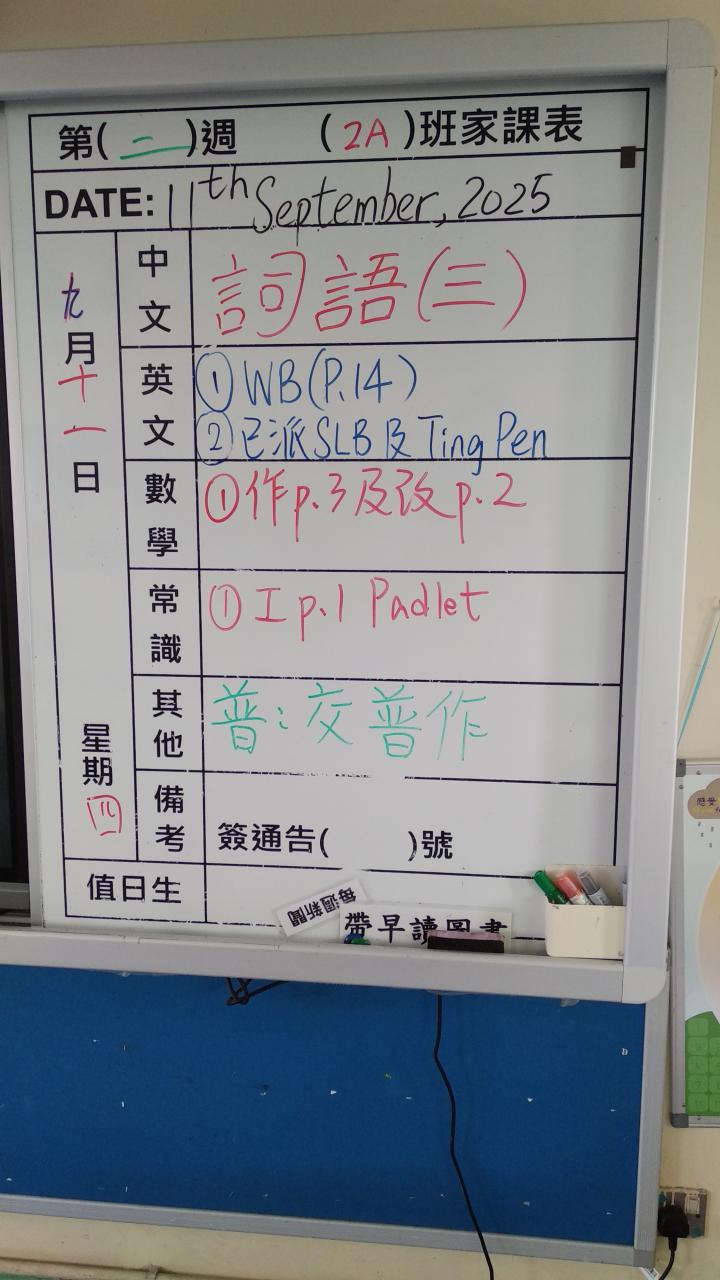 第(二)週 (2A)班家課表
DATE: 11th September, 2025
九月十一日
星期四
中文
詞語(三)
英文
① WB(P.14)
② 已派SLB及Ting Pen
數學
①作p.3及改p.2
常識
① I p.1 Padlet
其他
普:交普作
備考
簽通告( )號
值日生
每週新聞
帶早讀圖書